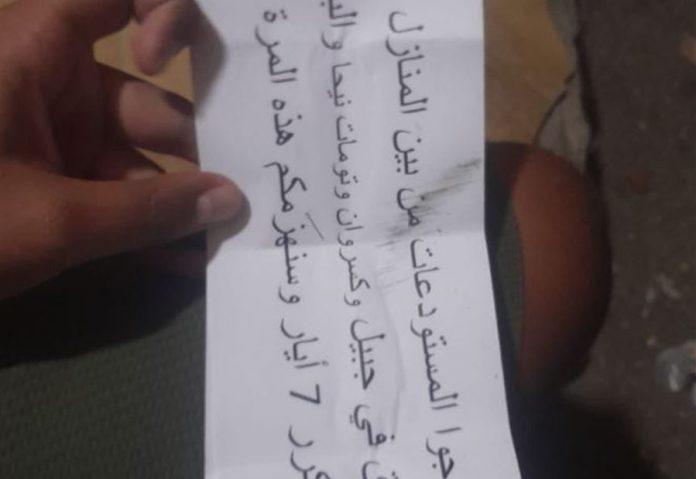 جوا المستودعات من بين المنازل
في جبيل وكسروان وتومات نيحا
7 أيار وسنهزمكم هذه المرة